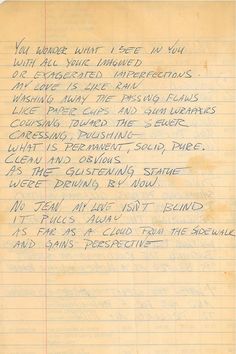 YOU WONDER WHAT I SEE IN YOU
WITH ALL YOUR IMAGINED
OR EXAGERATED IMPERFECTIONS.
MY LOVE IS LIKE RAIN
WASHING AWAY THE PASSING FLAWS
LIKE PAPER CUPS AND GUM WRAPPERS
COURSING TOWARD THE SEWER
CARESSING, POLISHING
WHAT IS PERMANENT, SOLID, PURE.
CLEAN AND OBVIOUS
AS THE GLISTENING STATUE
WERE DRIVING BY NOW.
NO JEAN, MY LOVE ISN'T BLIND
IT PULLS AWAY
AS FAR AS A CLOUD FROM THE SIDEWALK
AND GAINS PERSPECTIVE